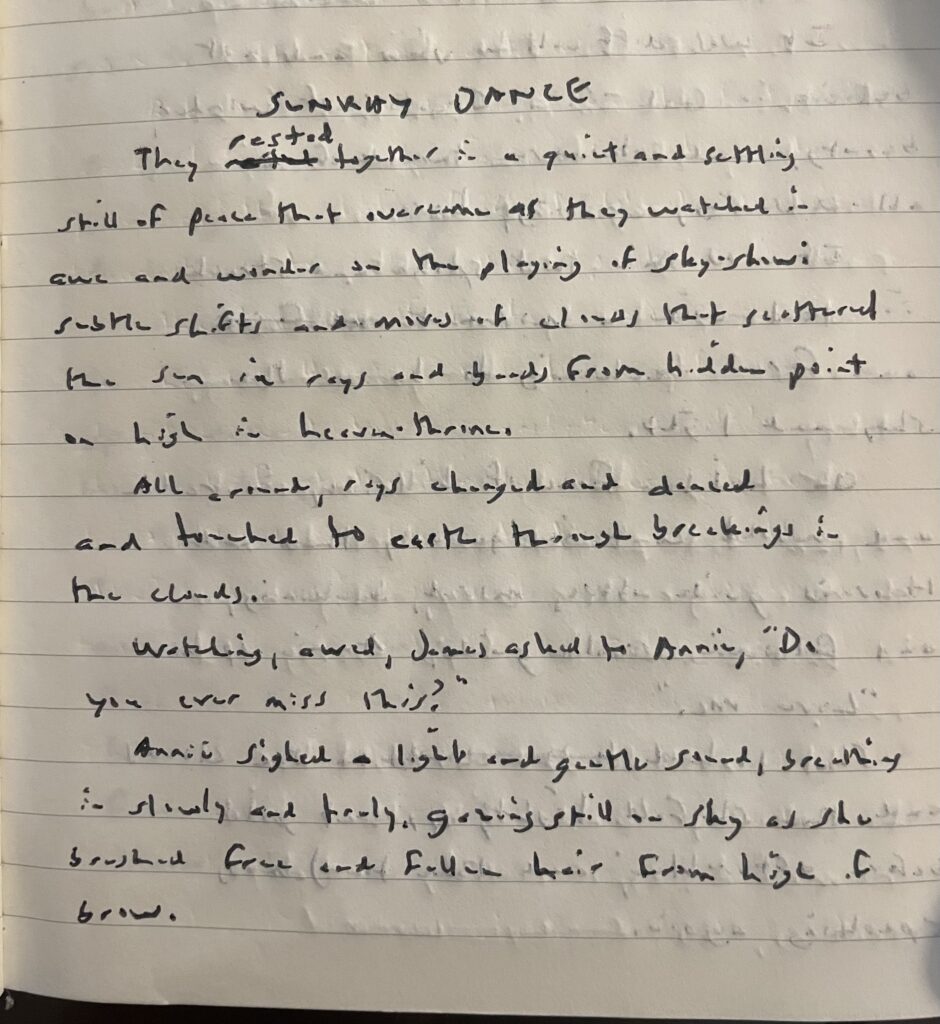 SUNRAY DANCE
They rested together in a quiet and settling
still of peace that overcame as they watched in
awe and wonder on the playing of sky-show:
subtle shifts and moves of clouds that scattered
the sun in rays and bands from hidden point
on high in heaven-throne.
All around, rays changed and danced
and touched to earth through breakings in
the clouds.
Watching, awed, James asked to Annie, "Do
you ever miss this?"
Annie sighed a light and gentle sound, breathing
in slowly and truly, gazing still on sky as she
brushed free and fallen hair from high of
brow.